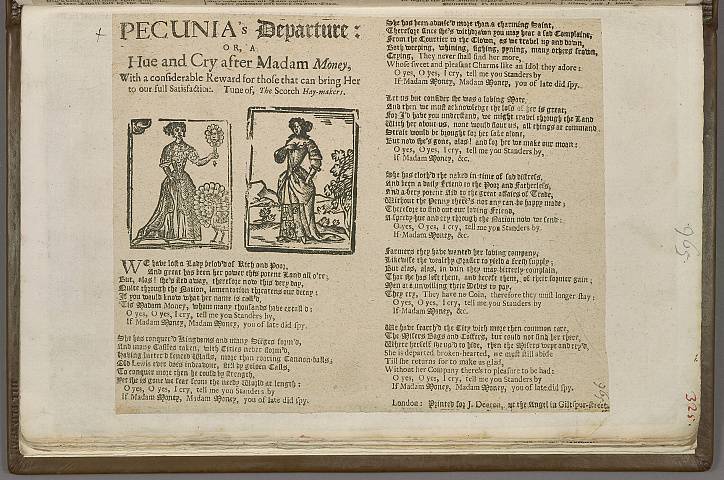 PECUNIA's Departure:
OR, A
Hue and Cry after Madam Money,
With a considerable Reward for those that can bring Her
to our full Satisfaction. Tune of, The Scotch Hay-makers.
WE have lost a Lady belov'd of Rich and Poor,
And great has been her power this potent Land all o'er;
But, alas! she's fled away, therefore now this very day,
Quite through the Nation, lamentation threatens our decay;
If you would know what her name is call'd,
'Tis Madam Money, whom many thousands have extoll'd:
O yes, O yes, I cry, tell me you Standers by,
If Madam Money, Madam Money, you of late did spy.
She has conquer'd Kingdoms and many Sieges form'd,
And many Castles taken, with Cities never storm'd,
Having batter'd sencels Walls, more than roaring Cannon-balls;
Old Lewis ever does endeavour, still by golden Calls,
To conquer more then he could by strength,
Yet she is gone we fear from the needy World at length:
O yes, O yes, I cry, tell me you Standers by
If Madam Money, Madam Money, you of late did spy.
She has been advis'd more than a charming Saint,
Therefore since she's withdrawn you may hear a sad Complaint,
From the Courtier to the Clown, as we travel up and down,
Both weeping, whining, sighing, pyning, many others frown,
Crying, They never shall find her more,
Whose sweet and pleasant Charms like an Idol they adore:
O yes, O yes, I cry, tell me you Standers by
If Madam Money, Madam Money, you of late did spy.
Let us but consider she was a loving Mate,
And then we must acknowledge the loss of her is great;
For I'd have you understand, we might travel through the Land
With her about us, none would flout us, all things at command
Strait would be brought for her sake alone,
But now she's gone, alas! and for her we make our moan:
O yes, O yes, I cry, tell me you Standers by,
If Madam Money, &c.
She has cloth'd the naked in time of sad distress,
And been a daily Friend to the Poor and Fatherless,
And a very potent Aid to the great affairs of Trade,
Without the Penny there's not any can be happy made;
Therefore to find out our loving Friend,
A speedy hue and cry through the Nation now we send:
O yes, O yes, I cry, tell me you Standers by
If Madam Money, &c.
Farmers they have wanted her loving company,
Likewise the wealthy Grasier to yield a fresh supply;
But alas, alas, in vain they may bitterly complain,
That she has left them, and bereft them, of their former gain;
Men are unwilling their Debts to pay,
They cry, They have no Coin, therefore they must longer stay:
O yes, O yes, I cry, tell me you Standers by
If Madam Money, &c.
We have search'd the City with more then common care,
The Misers Bags and Coffers, but could not find her there,
Where herself she us'd to hide, then the Misers wept and cry'd,
She is departed broken-hearted, we must still abide
Till she returns for to make us glad,
Without her Company there's no pleasure to be had:
O yes, O yes, I cry, tell me you Standers by
If Madam Money, Madam Money, you of late did spy.
London: Printed for J. Deacon, at the Angel in Giltspur-street.
965.
325.